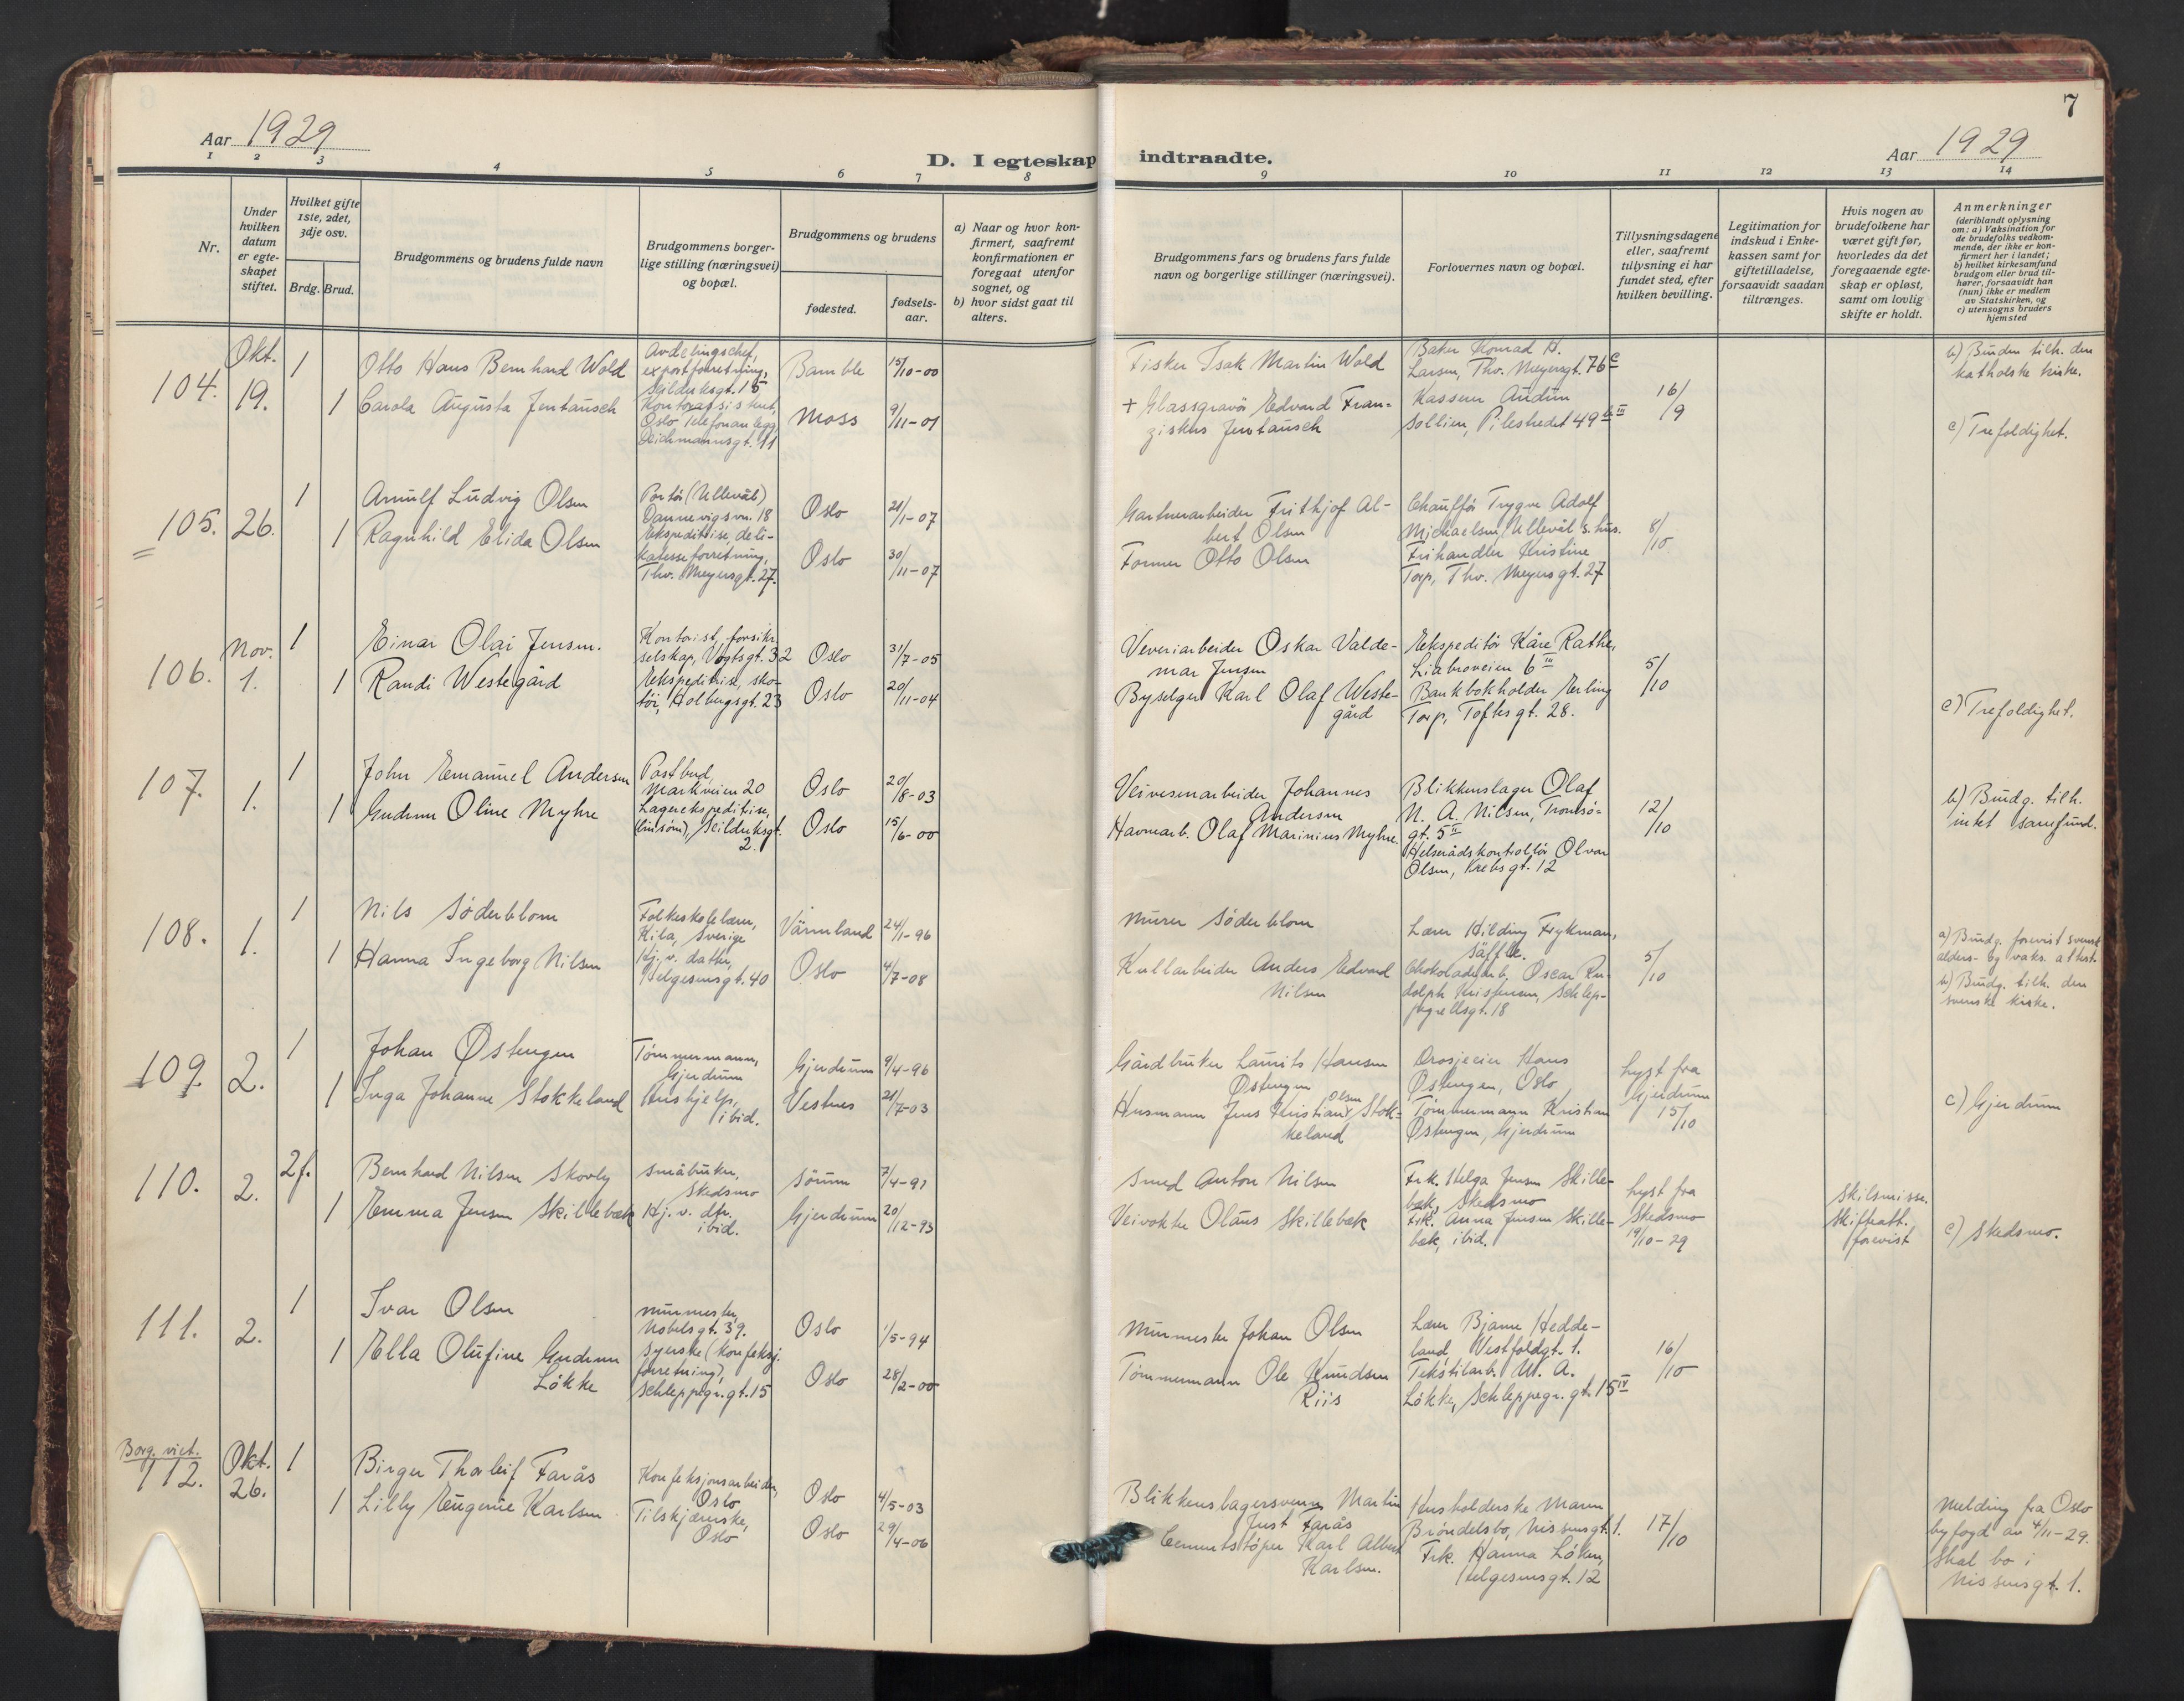 7
Aar 1929
D. I egteskap indtraadte.
Aar 1929
1 2 3 4 5 6 7 8 9 10 11 12 13 14
Nr.
Under hvilken datum er egteskapet stiftet.
Hvilket gifte 1ste, 2det, 3dje osv.
Brdg. Brud.
Brudgommens og brudens fulde navn
Brudgommens borgerlige stilling (næringsvei) og bopæl.
Brudgommens og brudens
fødested.
fødsels-aar.
a) Naar og hvor konfirmert, saafremt konfirmationen er foregaat utenfor sognet, og
b) hvor sidst gaat til alters.
Brudgommens fars og brudens fars fulde navn og borgerlige stillinger (næringsvei).
Forlovernes navn og bopæl.
Tillysningsdagene eller, saafremt tillysning ei har fundet sted, efter hvilken bevilling.
Legitimation for indskud i Enkekassen samt for giftetilladelse, forsaavidt saadan tiltrænges.
Hvis nogen av brudefolkene har været gift før, hvorledes da det foregaaende egteskap er opløst, samt om lovlig skifte er holdt.
Anmerkninger
(deriblandt oplysning om: a) Vaksination for de brudefolks vedkommende, der ikke er konfirmert her i landet;
b) hvilket kirkesamfund brudgom eller brud tilhører, forsaavidt han (hun) ikke er medlem av Statskirken, og
c) utensogns bruders hjemsted
104.
Okt. 19.
1
Otto Hans Bernhard Wold
Avdelingschef,
exportforretning,
Seilduksgt. 15
Bamble
15/10-00
Fisker Isak Martin Wold
Baker Konrad H.
Larsen, Thv. Meyersgt. 76 c
16/9
b) Bruden tilh. den
katholske kirke.
1
Carola Augusta Jentausch
Kontorassistent,
Oslo Telefonanlegg,
Deichmannsgt. 11
Moss
9/11-01
+ Glassgravör Edvard Fran=
ziskus Jentausch
Kasserer Audun
Sollien, Pilestredet 49
c) Trefoldighet.
105.
26.
1
Arnulf Ludvig Olsen
Portör (Ullevål)
Dannevigsvn. 18
Oslo
21/1-07
Gartnerarbeider Frithjof Al-
bert Olsen
Chaufför Trygve Adolf
Michaelsen, Ullevål s.hus.
8/10
1
Ragnhild Elida Olsen
Ekspeditrise, deli-
katesseforretning,
Thv. Meyersgt. 27.
Oslo
30/11-07
Former Otto Olsen
Frihandler Kristine
Torp, Thv. Meyersgt. 27
106.
Nov. 1.
1
Einar Olai Jensen.
Kontorist, forsikr.
selskap, Vogtsgt. 32
Oslo
31/7-05
Veveriarbeider Oskar Valde-
mar Jensen
Ekspeditör Kåre Rathe,
Liabroveien 6 III
5/10
1
Randi Westegård
Ekspeditrise, sko-
töi, Holbergsgt. 23
Oslo
20/11-04
Byselger Karl Olaf Weste-
gård
Bankbokholder Erling
Torp, Toftesgt. 28.
c) Trefoldighet.
107.
1.
1
John Emanuel Andersen
Postbud,
Markveien 20
Oslo
20/8-03
Veivesenarbeider Johannes
Andersen
Blikkenslager Olaf
N. A. Nilsen, Tromsö-
gt. 5 II
12/10
b) Brudg. tilh.
intet samfund.
1
Gudrun Oline Myhre
Lagerekspeditrise,
(linsöm), Seilduksgt.
2.
Oslo
15/6-00
Havnearb. Olaf Marinius Myhre.
Helserådskontrollör Olvar
Olsen, Krebsgt. 12
108.
1.
1
Nils Söderblom
Folkeskolelærer,
Kila, Sverige
Värmland
24/1-96
Murer Söderblom
Lærer Hilding Frykman,
Säffle.
5/10
a) Brudg. forevist svensk
alders- og vaks. attest.
1
Hanna Ingeborg Nilsen
Hj. v. datter,
Helgesensgt. 40
Oslo
4/7-08
Kullarbeider Anders Edvard
Nilsen
Chokoladearb. Oscar Ru-
dolph Kristensen, Schlep-
pegrellsgt. 18
b) Brudg. tilh. den
svenske kirke.
109.
2.
1
Johan Østengen
Tömmermann,
Gjerdrum
Gjerdrum
9/4-96
Gårdbruker Laurits Hansen
Østengen
Drosjeeier Hans
Østengen, Oslo
Lyst fra
Gjerdrum
15/10
1
Inga Johanne Stokkeland
Hushjelp,
ibid.
Vestnes
21/7-03
Husmann Jens Kristian Olsen Stok-
keland
Tömmermann Kristian
Østengen, Gjerdrum
c) Gjerdrum
110.
2.
2 f.
Bernhard Nilsen Skovly
Småbruker,
Skedsmo
Sörum
7/4-91
Smed Anton Nilsen
Frk. Helga Jensen Skille-
bæk, Skedsmo
Lyst fra
Skedsmo
19/10-29
Skilsmisse.
Skifteatt.
forevist
1
Emma Jensen Skillebæk
Hj. v. dtr.
ibid.
Gjerdrum
20/12-93
Veivokter Olaus Skillebæk
Frk. Anna Jensen Skille-
bæk, ibid.
c) Skedsmo.
111.
2.
1
Ivar Olsen
Murmester,
Nobelsgt. 39.
Oslo
1/5-94
Murmester Johan Olsen
Lærer Bjarne Hedde-
land, Vestfoldgt. 1.
16/10
1
Ella Olufine Gudrun
Lökke
Syerske (konfeksj.
forretning),
Schleppegr.gt. 15
Oslo
28/2-00
Tömmermann Ole Knudsen
Riis
Tekstilarb. W. A.
Lökke, Schleppegr.gt. 15 IV
Borg. viet.
112.
Okt. 26.
1
Birger Thorleif Farås
Konfeksjonsarbeider,
Oslo
Oslo
4/5-03
Blikkenslagersvenn Martin
Just Farås
Husholderske Maren
Bröndelsbo, Nissensgt. 1.
17/10
Melding fra Oslo
byfogd av 4/11-29.
Skal bo i
Nissensgt. 1.
1
Lilly Eugenie Karlsen
Tilskjærerske,
Oslo
Oslo
29/4-06
Cementstöper Karl Albert
Karlsen.
Frk. Hanna Löken,
Helgesensgt. 12